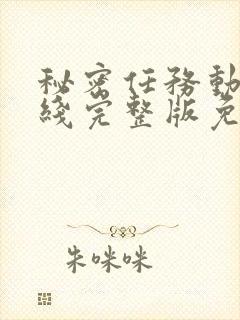 秘密任務動
綫完整版免
朱咪咪